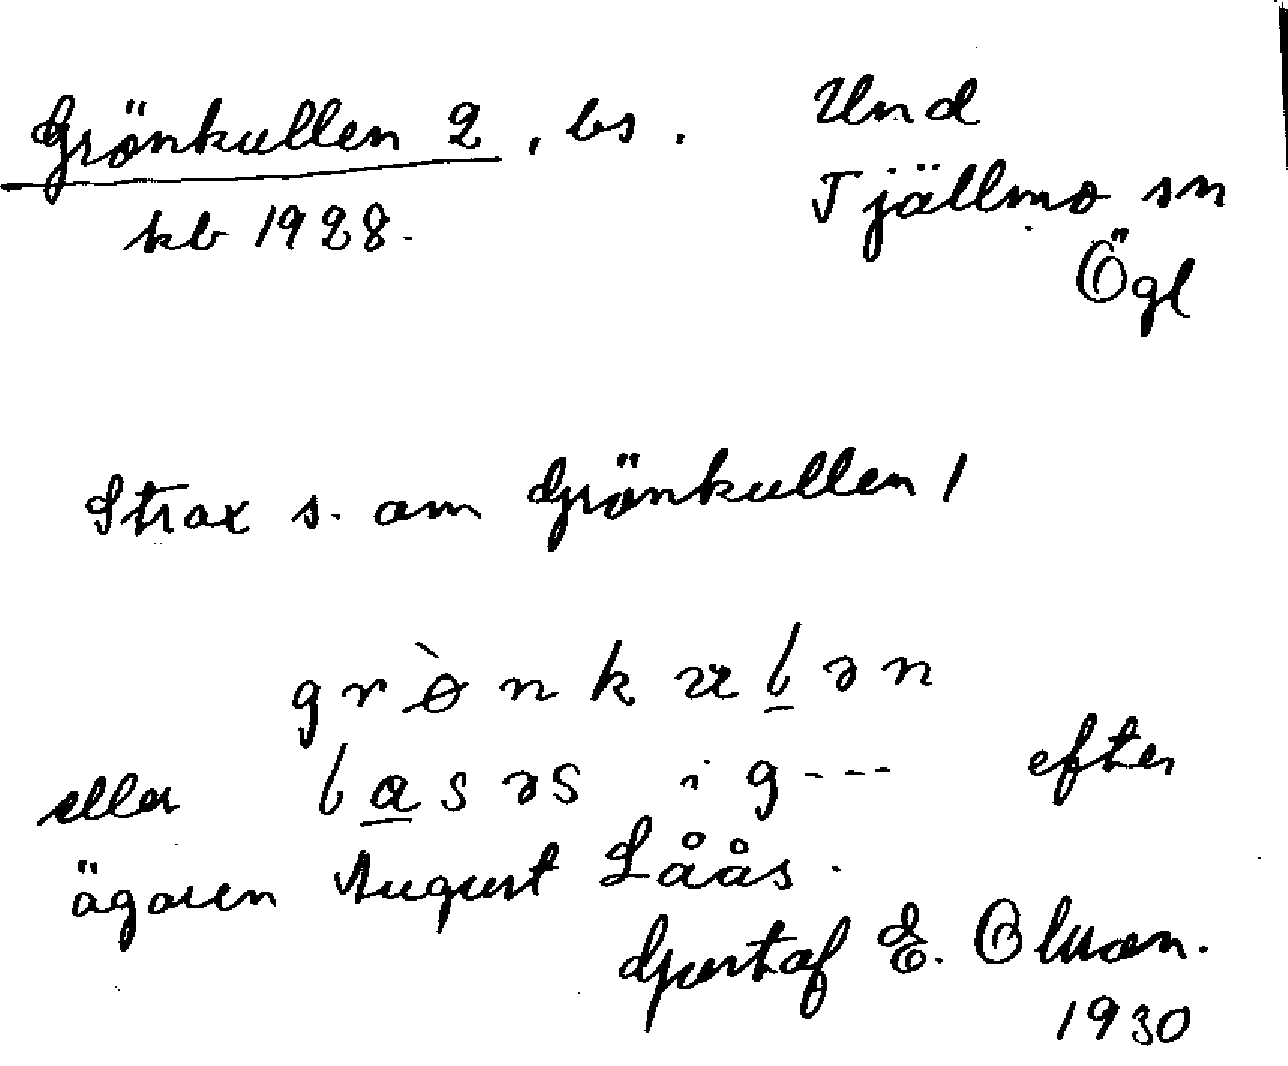 Grönkullen 2, bs. Und
kb 1928. Tjällmo sn
Ögl
Strax s. om Grönkullen 1
grø̀nkulən
eller lasəs i g--- efter
ägaren August Låås.
Gustaf E. Olsson.
1930